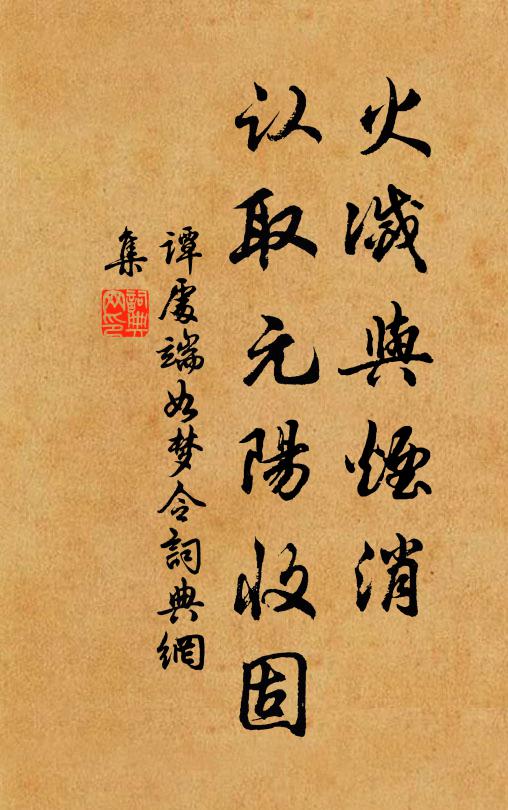 火滅與煙消
认取元陽收固
谭處端如梦令詞典網
集
詞典
网印